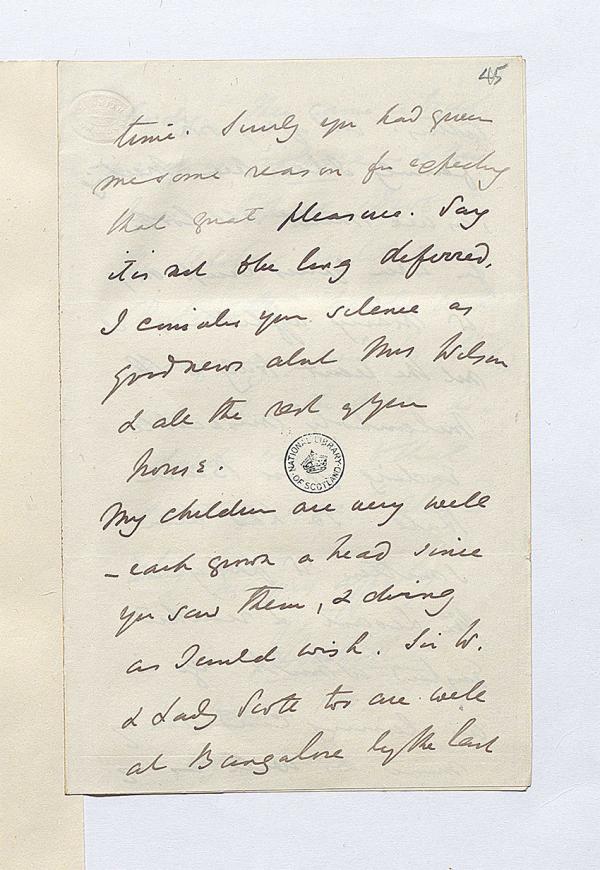 45
time. Surely you had given
me some reason for expecting
that great pleasure. Say
it is not to be long deferred.
I consider your silence as
good news about Mrs Wilson
& all the rest of your
house.
NATIONAL LIBRARY
OF SCOTLAND
My children are very well
– each grown a head since
you saw them, & doing
as I could wish. Sir W.
& Lady Scott too are well
at Bangalore by the last